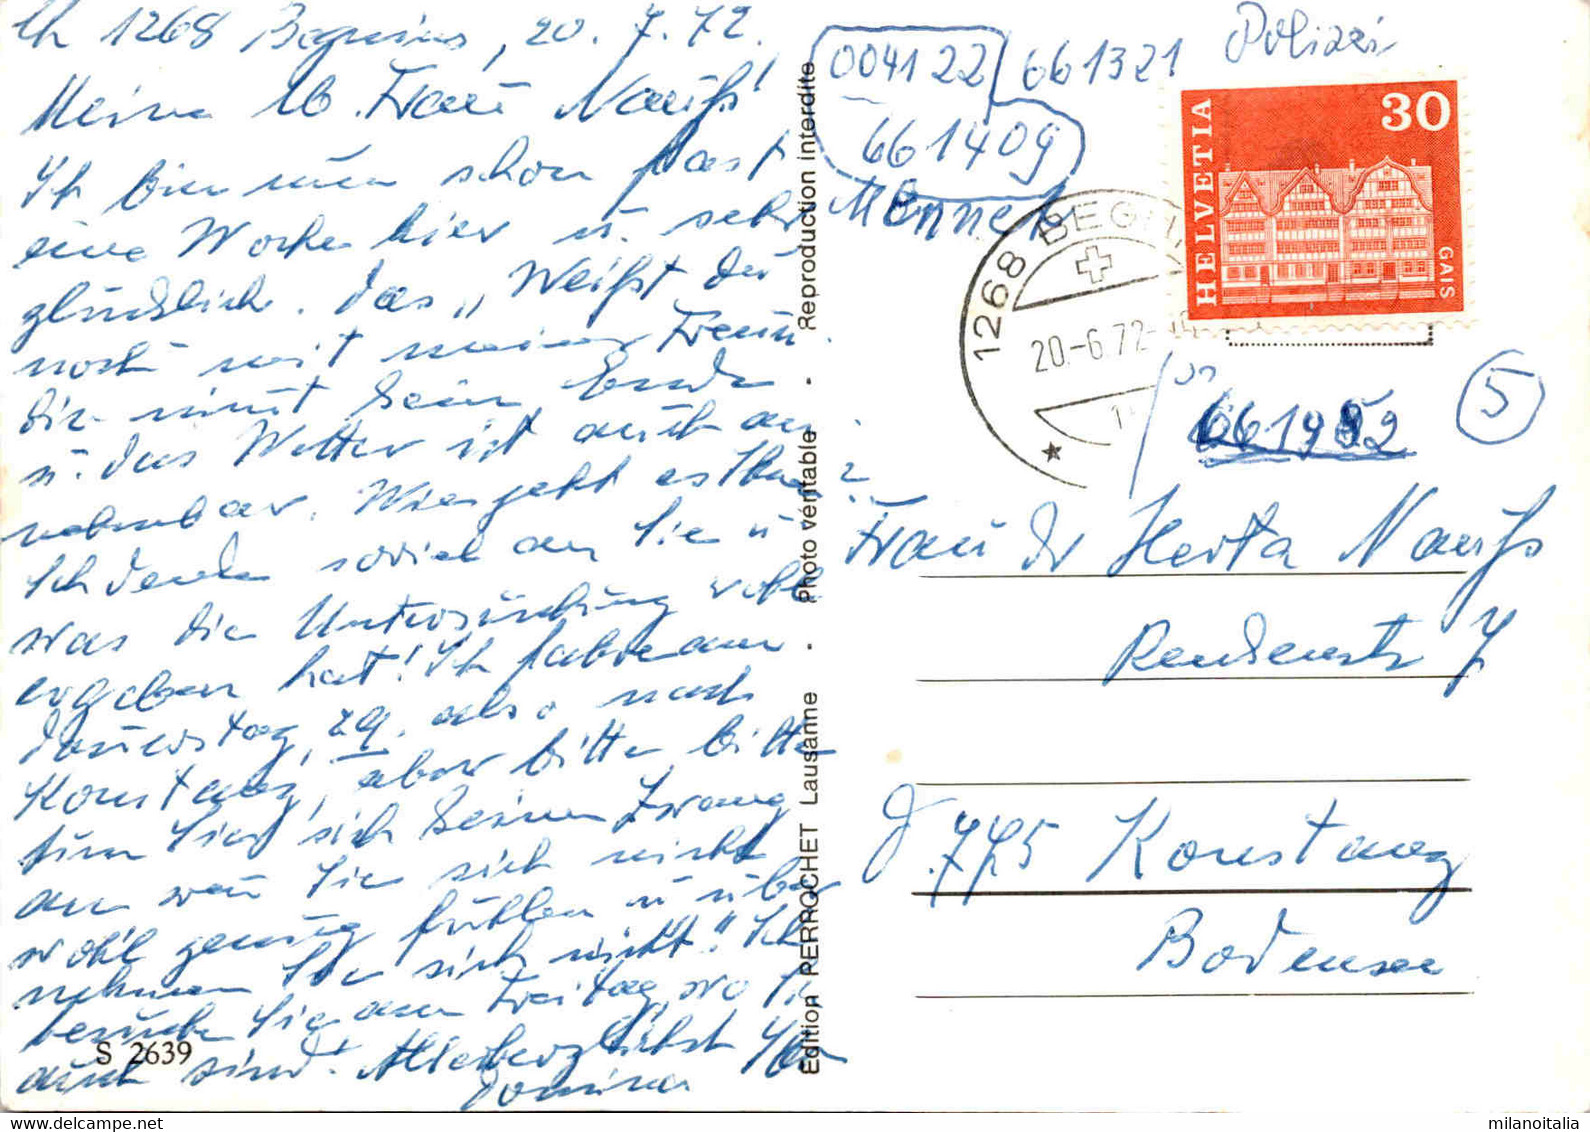 Ch 1268 Begnins, 20. 7. 72.
Meine lb. Frau Nauß!
Ich bin nun schon fast
eine Woche hier u. sehr
glücklich. Das „Weißt du
noch" mit meiner Freun
din nimt kein Ende
u. das Wetter ist auch an-
nehmbar. Wie geht es Ihnen?
Ich denke soviel an Sie u
was die Untersuchung wohl
ergeben hat! Ich fahre am
Donnerstag, 29. also nach
Konstanz, aber bitte, bitte
tun Sie sich keinen Zwang
an wen Sie sich nicht
wohl genug fühlen u über
nehmen Sie sich nicht! Ich
besuche Sie am Freitag, wo Sie
auch sind! Allerherzlichst Ihre
Domina
S 2639
Edition PERROCHET Lausanne · Photo véritable · Reproduction interdite
004122 661321 Polizei
661409
Monnet
HELVETIA
30
GAIS
1268 BEGNI
20.-6.72-
661952
5
Frau Dr Herta Nauß
7
D 775 Konstanz
Bodensee
milanoitalia